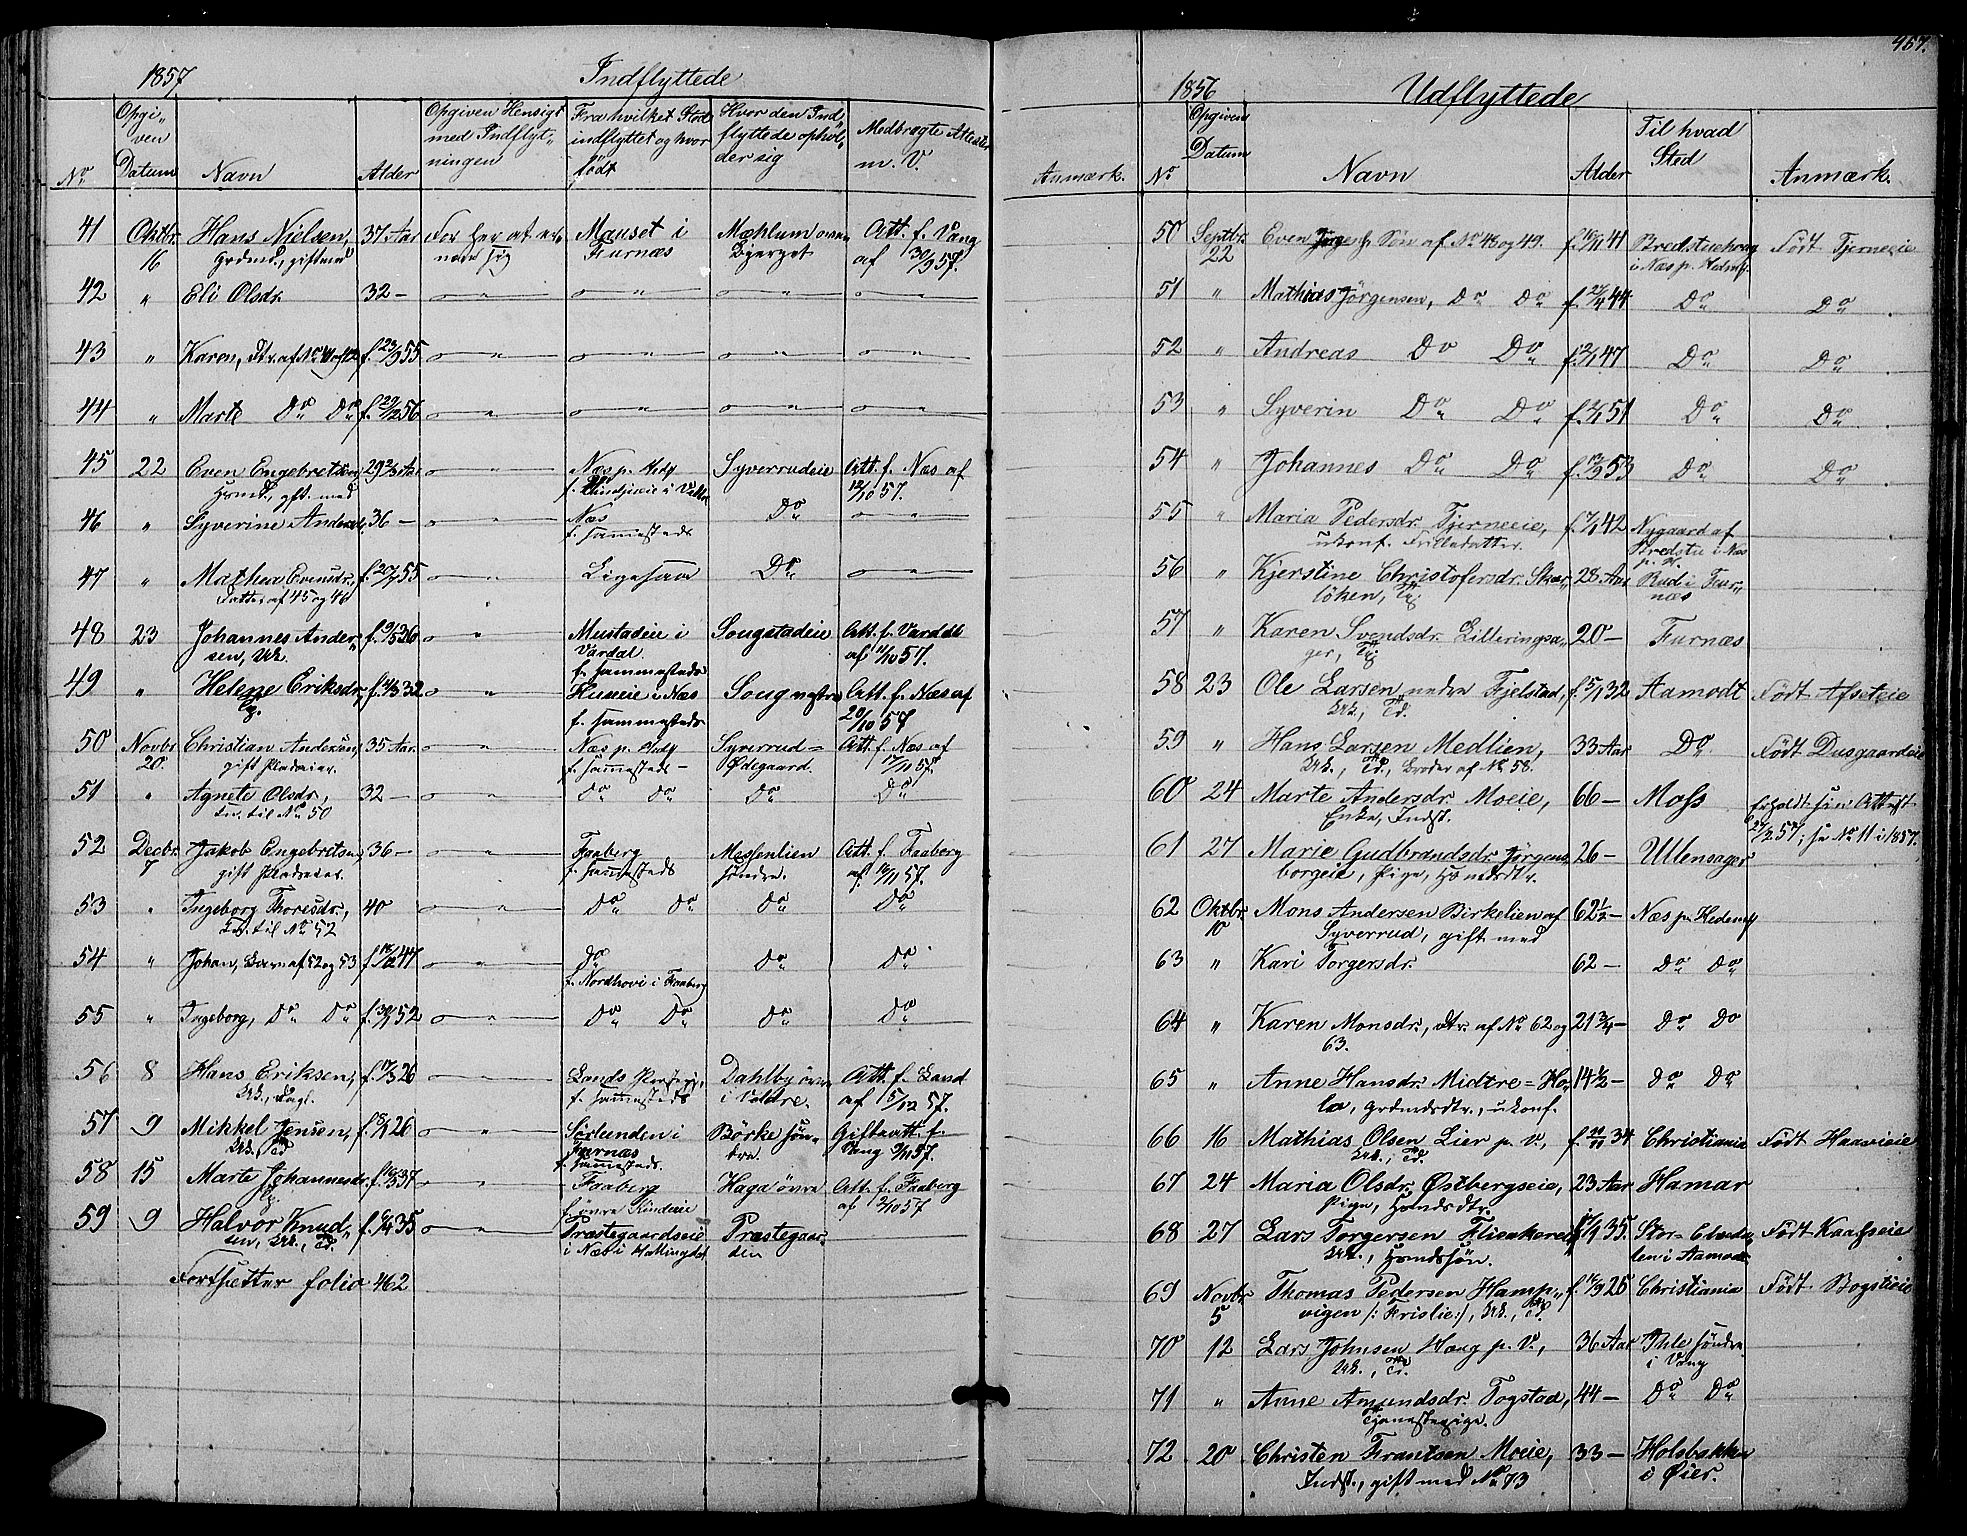 1857 Indflyttede
No Opgiven Datum Navn Alder Opgiven Hensigt med Indflytningen Fra hvilket Sted indflyttet og hvor født Hvor den Indflyttede opholder sig Medbragte Attester m. V. Anmærk.
41 Oktbr. 16 Hans Nielsen, Grdmd., gift med 37 Aar For her at ernære sig Mauset i Furnæs Mæhlum øvre Att. f. Vang af 30/9 57.
42 " Eli Olsdr. 32 — — " — — " — — " — — " —
43 " Karen, Dtr. af No 41 og 42 f. 23/3 55 — " — — " — — " — — " —
44 " Marte Do Do f. 29/12 56 — " — — " — — " — — " —
45 22 Even Engebretsen, Hsmd., gft. med 29 2/3 Aar — " — Næs p. Hedm. Syverrudeie Att. f. Næs af 12/10 57.
46 " Syverine Andersdr. 36 — — " — Næs f. sammesteds Do — " —
47 " Mathea Evensdr., Datter af 45 og 46 f. 20/7 55 — " — Ligesaa Do — " —
48 23 Johannes Andersen, Uk. f. 9/5 26 — " — Mustadeie i Vardal f. sammesteds Sougstadeie Att. f. Vardal af 11/10 57.
49 " Helene Eriksdr., Pg. f. 4/3 32 — " — Huseie i Næs f. sammesteds Soug nestre Att. f. Næs af 20/10 57
50 Novbr. 20. Christian Andersen, gift Pladseier. 35 Aar. — " — Næs p. Hedm f. sammesteds — Syverrud= Ødegaard. Att. f. Næs af 17/11 57.
51 " Agnete Olsdr., Kn. til No 50 32 — — " — Do Do Do Do
52 Decbr. 7 Jakob Engebretsen, gift Pladseier. 36 — — " — Faaberg f. sammesteds Messenlien søndre. Att. f. Faaberg af 13/11 57.
53 " Ingeborg Thoresdr., Kn. til No 52 40 — " — Do Do Do Do
54 " Johan, Søn af 52 og 53 f. 18/12 47 — " — Do f. Nordhovi i Faaberg Do Do
55 " Ingeborg, Do Do f. 30/1 52 — " — Do Do Do Do
56 8 Hans Eriksen, Uk., f. 17/3 26 — " — Lands Præstegj. f. sammesteds Dahlby øvre i Veldre. Att. f. Land af 5/12 57.
57 9 Mikkel Jensen, Uk., Td f. 8/1 26 — " — Sørlunden i Furnæs f. sammesteds. Børke søndre. Gifteatt. f. Vang 9/11 57.
58 15 Marte Johannesdr. Pg. f. 16/5 37 — " — Faaberg f. øvre Rindeie Haga øvre Att. f. Faaberg af 2/10 57
59 9 Halvor Knudsen, Uk., Td. f. 6/4 35 — " — Præstegaardseie i Næs i Hallingdal Præstegaarden
Fortsætter folio 462
457.
1856 Udflyttede
No Opgiven Datum Navn Alder Til hvad Sted Anmærk.
50 Septbr. 22 Even Jørgens. Søn af No 48 og 49. f. 16/11 41 Bredstuehaug i Næs p. Hedm. Født Tjerneeie
51 " Mathias Jørgensen, Do Do f. 27/4 44 Do Do
52 " Andreas Do Do f. 2/1 47 Do Do
53 " Syverin Do Do f. 2/1 51 Do Do
54 " Johannes Do Do f. 13/9 53 Do Do
55 " Maria Pedersdr. Tjerneeie, ukonf. Frilledatter. f. 7/1 42 Nygaard af Bredstu i Næs p. H.
56 " Kjerstine Christofersdr. Skærløken, Pg. 28 Aar Rud i Furnæs
57 " Karen Svendsdr. Lilleringsager, Pg 20 — Furnæs
58 23 Ole Larsen nedre Fjelstad, Uk., Td. f. 5/1 32 Aamodt Født Afseteie
59 " Hans Larsen Medlien, Uk., Td., Broder af No 58. 33 Aar Do Født Dusgaardeie
60 24 Marte Andersdr. Moeie, Enke, Indst. 66 — Moss Erholdt sin Attest 27/2 57; se No 11 i 1857.
61 27 Marie Gudbrandsdr. Jørgensborgeie, Pige, Hsmdsdtr. 26 — Ullensager
62 Oktbr. 10 Mons Andersen Birkelien af Syverrud, gift med 62 1/2 — Næs p. Hedemk
63 " Kari Torgersdr. 62 — Do Do
64 " Karen Monsdr., dtr. af No 62 og 63. 21 3/4 — Do Do
65 " Anne Hansdr. Midtre=Hola, Grdmdsdtr., ukonf. 14 1/2 — Do Do
66 16 Mathias Olsen Lier p. V., Uk., Td. f. 11/11 34 Christiania Født Haavieie
67 24 Maria Olsdr. Østbergseie, Pige, Hsmdsdtr. 23 Aar Hamar
68 27 Lars Torgersen Flisakereie Uk., Hsmdssøn. f. 17/9 35. Stor= i Aamodt Født Kaasseie
69 Novbr. 5 Thomas Pedersen Hampvigen /: Krislie:/, Uk., Td. f. 14/9 26 Christiania Født Bogstieie
70 12 Lars Johnsen Haug p. V., Uk., Td. 36 Aar Ihle søndre i Vang
71 " Anne Amundsdr. Togstad, Tjenestepige. 44 — Do Do
72 20 Christen Frantsen Moeie, Indst., gift med No 73 33 — Holsbakken i Øier.